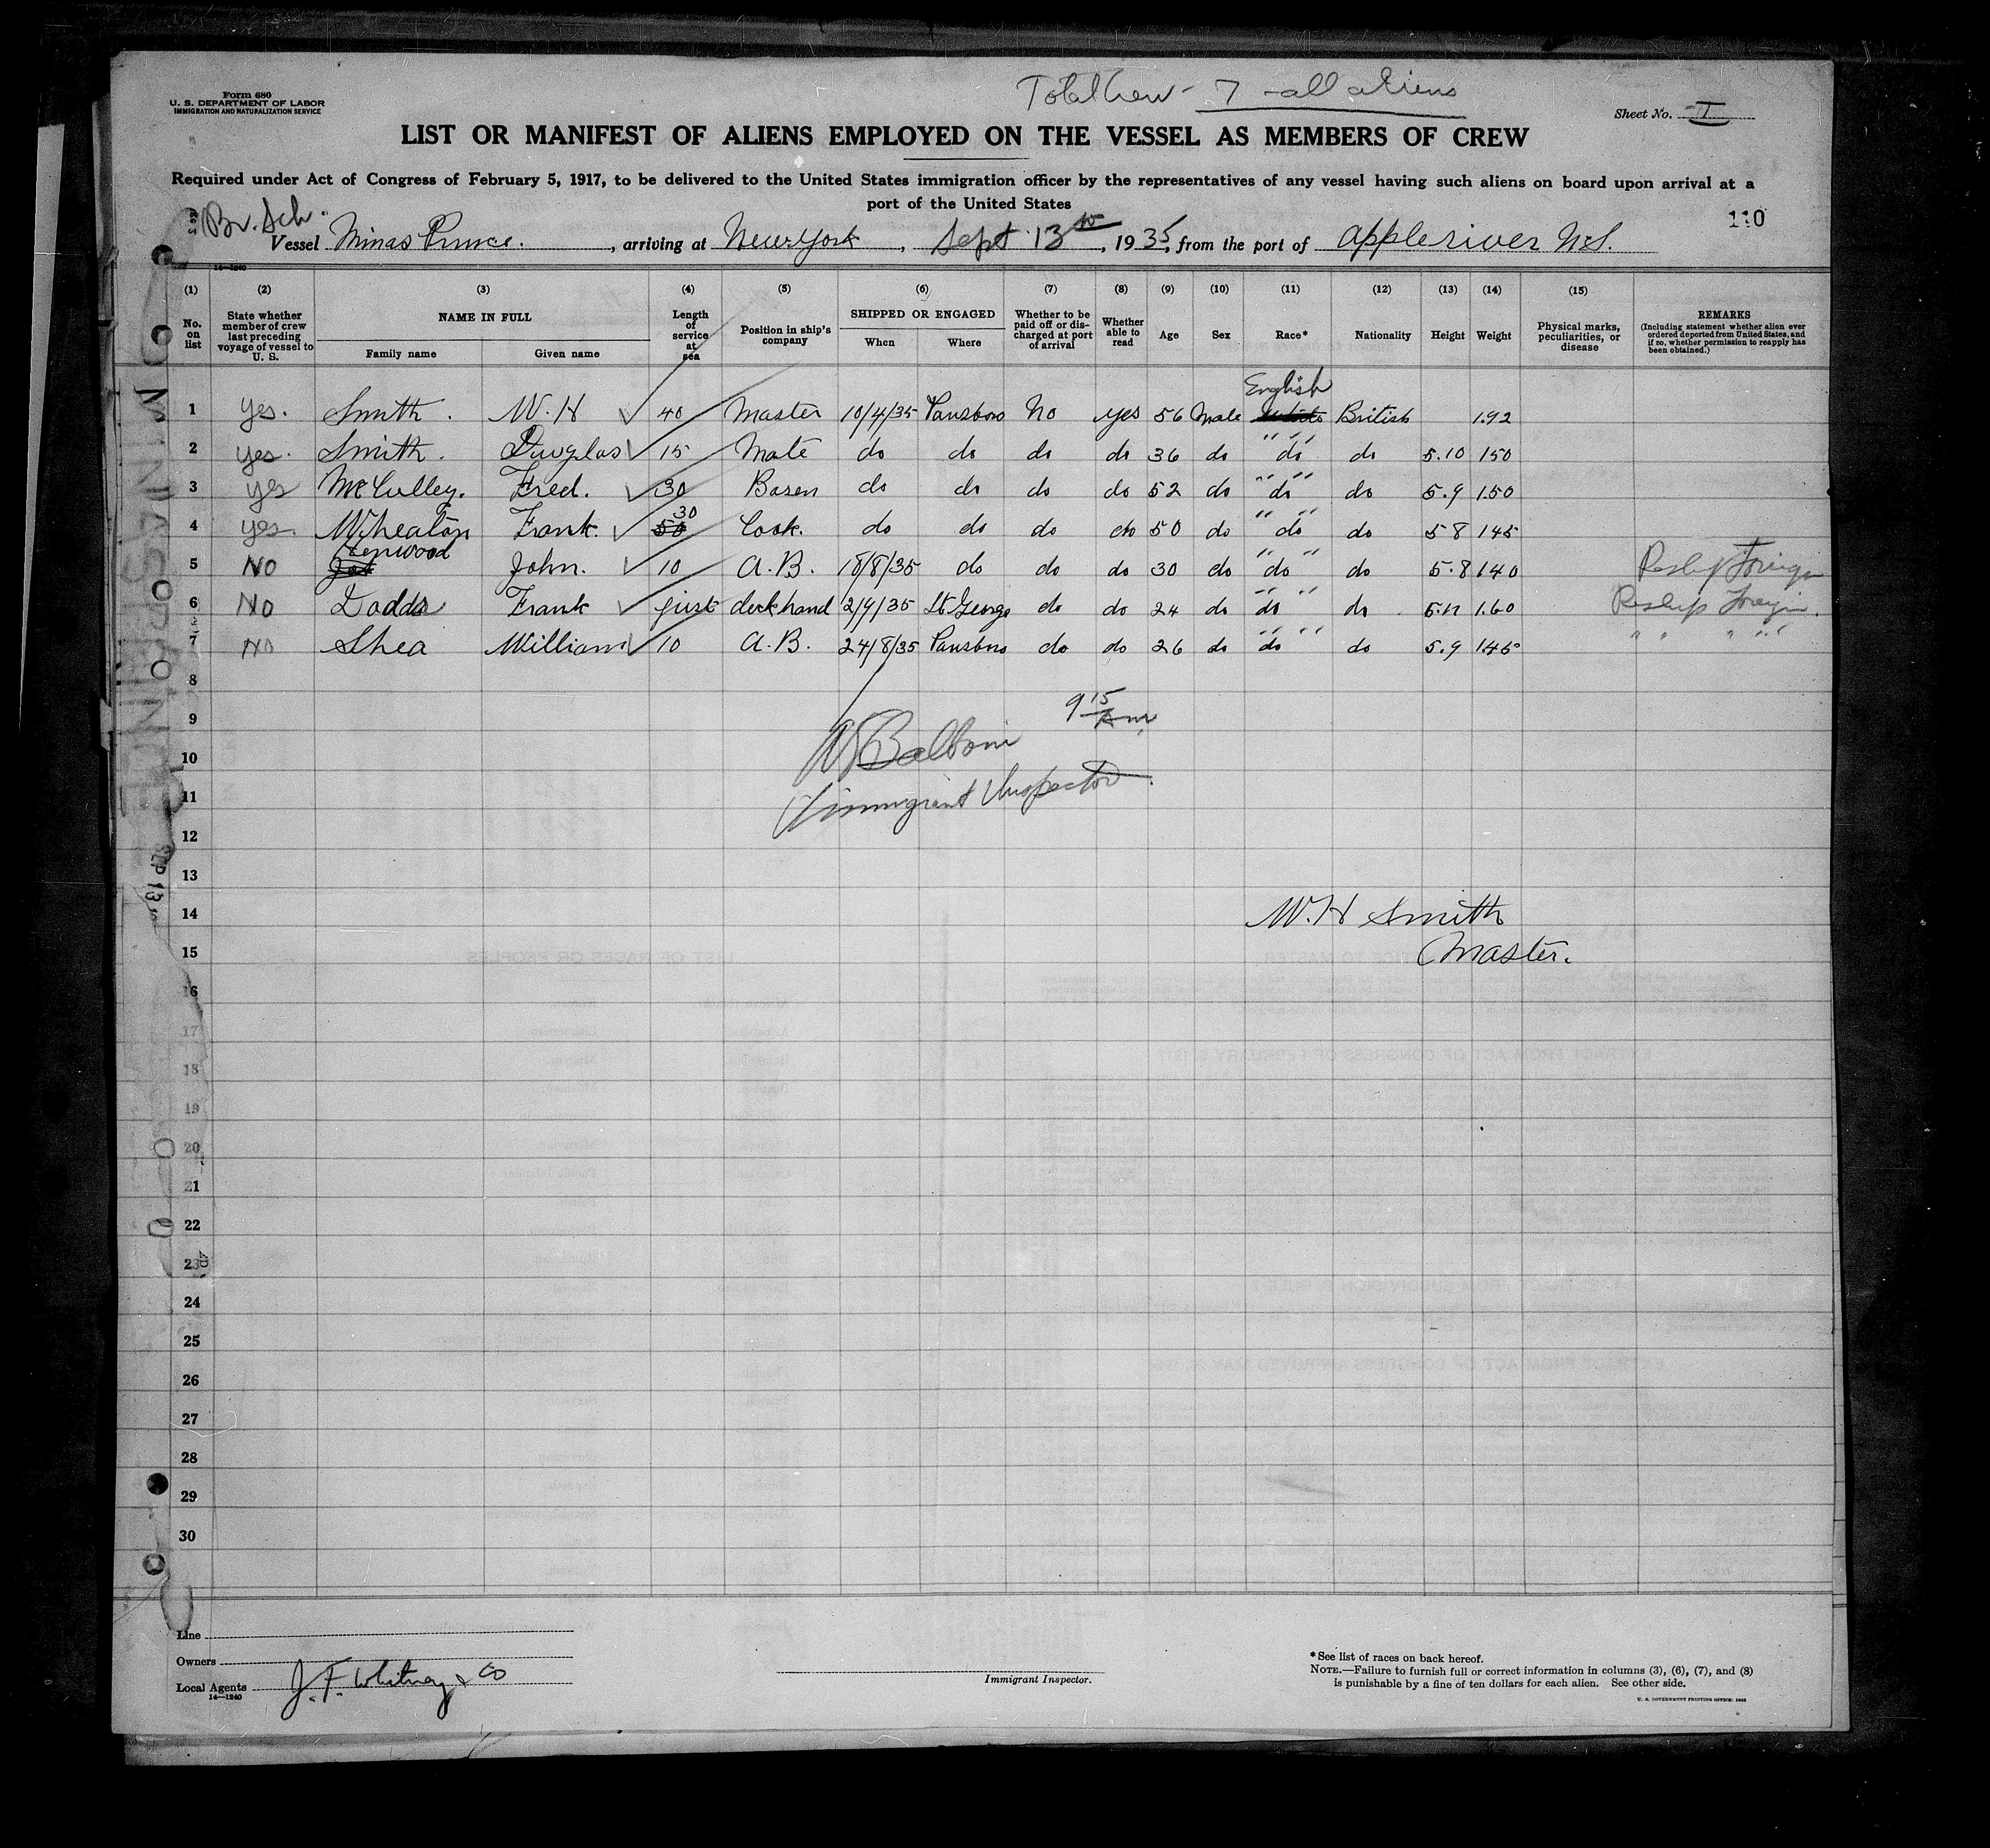 Total Crew - 7 - all aliens
Form 680
U. S. DEPARTMENT OF LABOR
IMMIGRATION AND NATURALIZATION SERVICE
Sheet No. I
LIST OR MANIFEST OF ALIENS EMPLOYED ON THE VESSEL AS MEMBERS OF CREW
Required under Act of Congress of February 5, 1917, to be delivered to the United States immigration officer by the representatives of any vessel having such aliens on board upon arrival at a
port of the United States
110
Br. Sch.
Vessel Minas Prince. , arriving at New York , Sept 13th, 1935, from the port of Apple river N.S.
14—1240
(1) (2) (3) (4) (5) (6) (7) (8) (9) (10) (11) (12) (13) (14) (15)
No. on list
State whether member of crew last preceding voyage of vessel to U. S.
NAME IN FULL
Family name
Given name
Length of service at sea
Position in ship's company
SHIPPED OR ENGAGED
When
Where
Whether to be paid off or discharged at port of arrival
Whether able to read
Age
Sex
Race*
Nationality
Height
Weight
Physical marks, peculiarities, or disease
REMARKS
(Including statement whether alien ever ordered deported from United States, and if no, whether permission to reapply has been obtained.)
English
1 yes. Smith. W. H 40 Master 10/4/35 Parrsboro No yes 56 Male British 1.92
2 yes. Smith. Douglas 15 Mate do do do do 36 do " " do do 5.10 150
3 yes McCulley. Fred. 30 Bosen do do do do 52 do " " do do 5.9 150
4 yes. Wheaton Frank. 30 Cook. do do do do 50 do " " do do 5 8 145
5 No John. 10 A. B. 18/8/35 do do do 30 do " " do do 5.8 140 Reship Foreign
6 No Dodds Frank first deckhand 2/9/35 St. George do do 24 do " " do do 5.11 160 Reship Foreign.
7 No Shea William 10 A. B. 24/8/35 Parrsboro do do 26 do " " do do 5.9 145 " " " "
8
9
9 15 Am
10
Immigrant Inspector
11
12
13
14
W. H Smith
15
Master.
16
17
18
19
20
21
22
23
24
25
26
27
28
29
30
MINAS PRINCE
SEP 13
Line
Owners
Local Agents J. F. Whitney & Co
14—1240
Immigrant Inspector.
*See list of races on back hereof.
NOTE.—Failure to furnish full or correct information in columns (3), (6), (7), and (8)
is punishable by a fine of ten dollars for each alien. See other side.